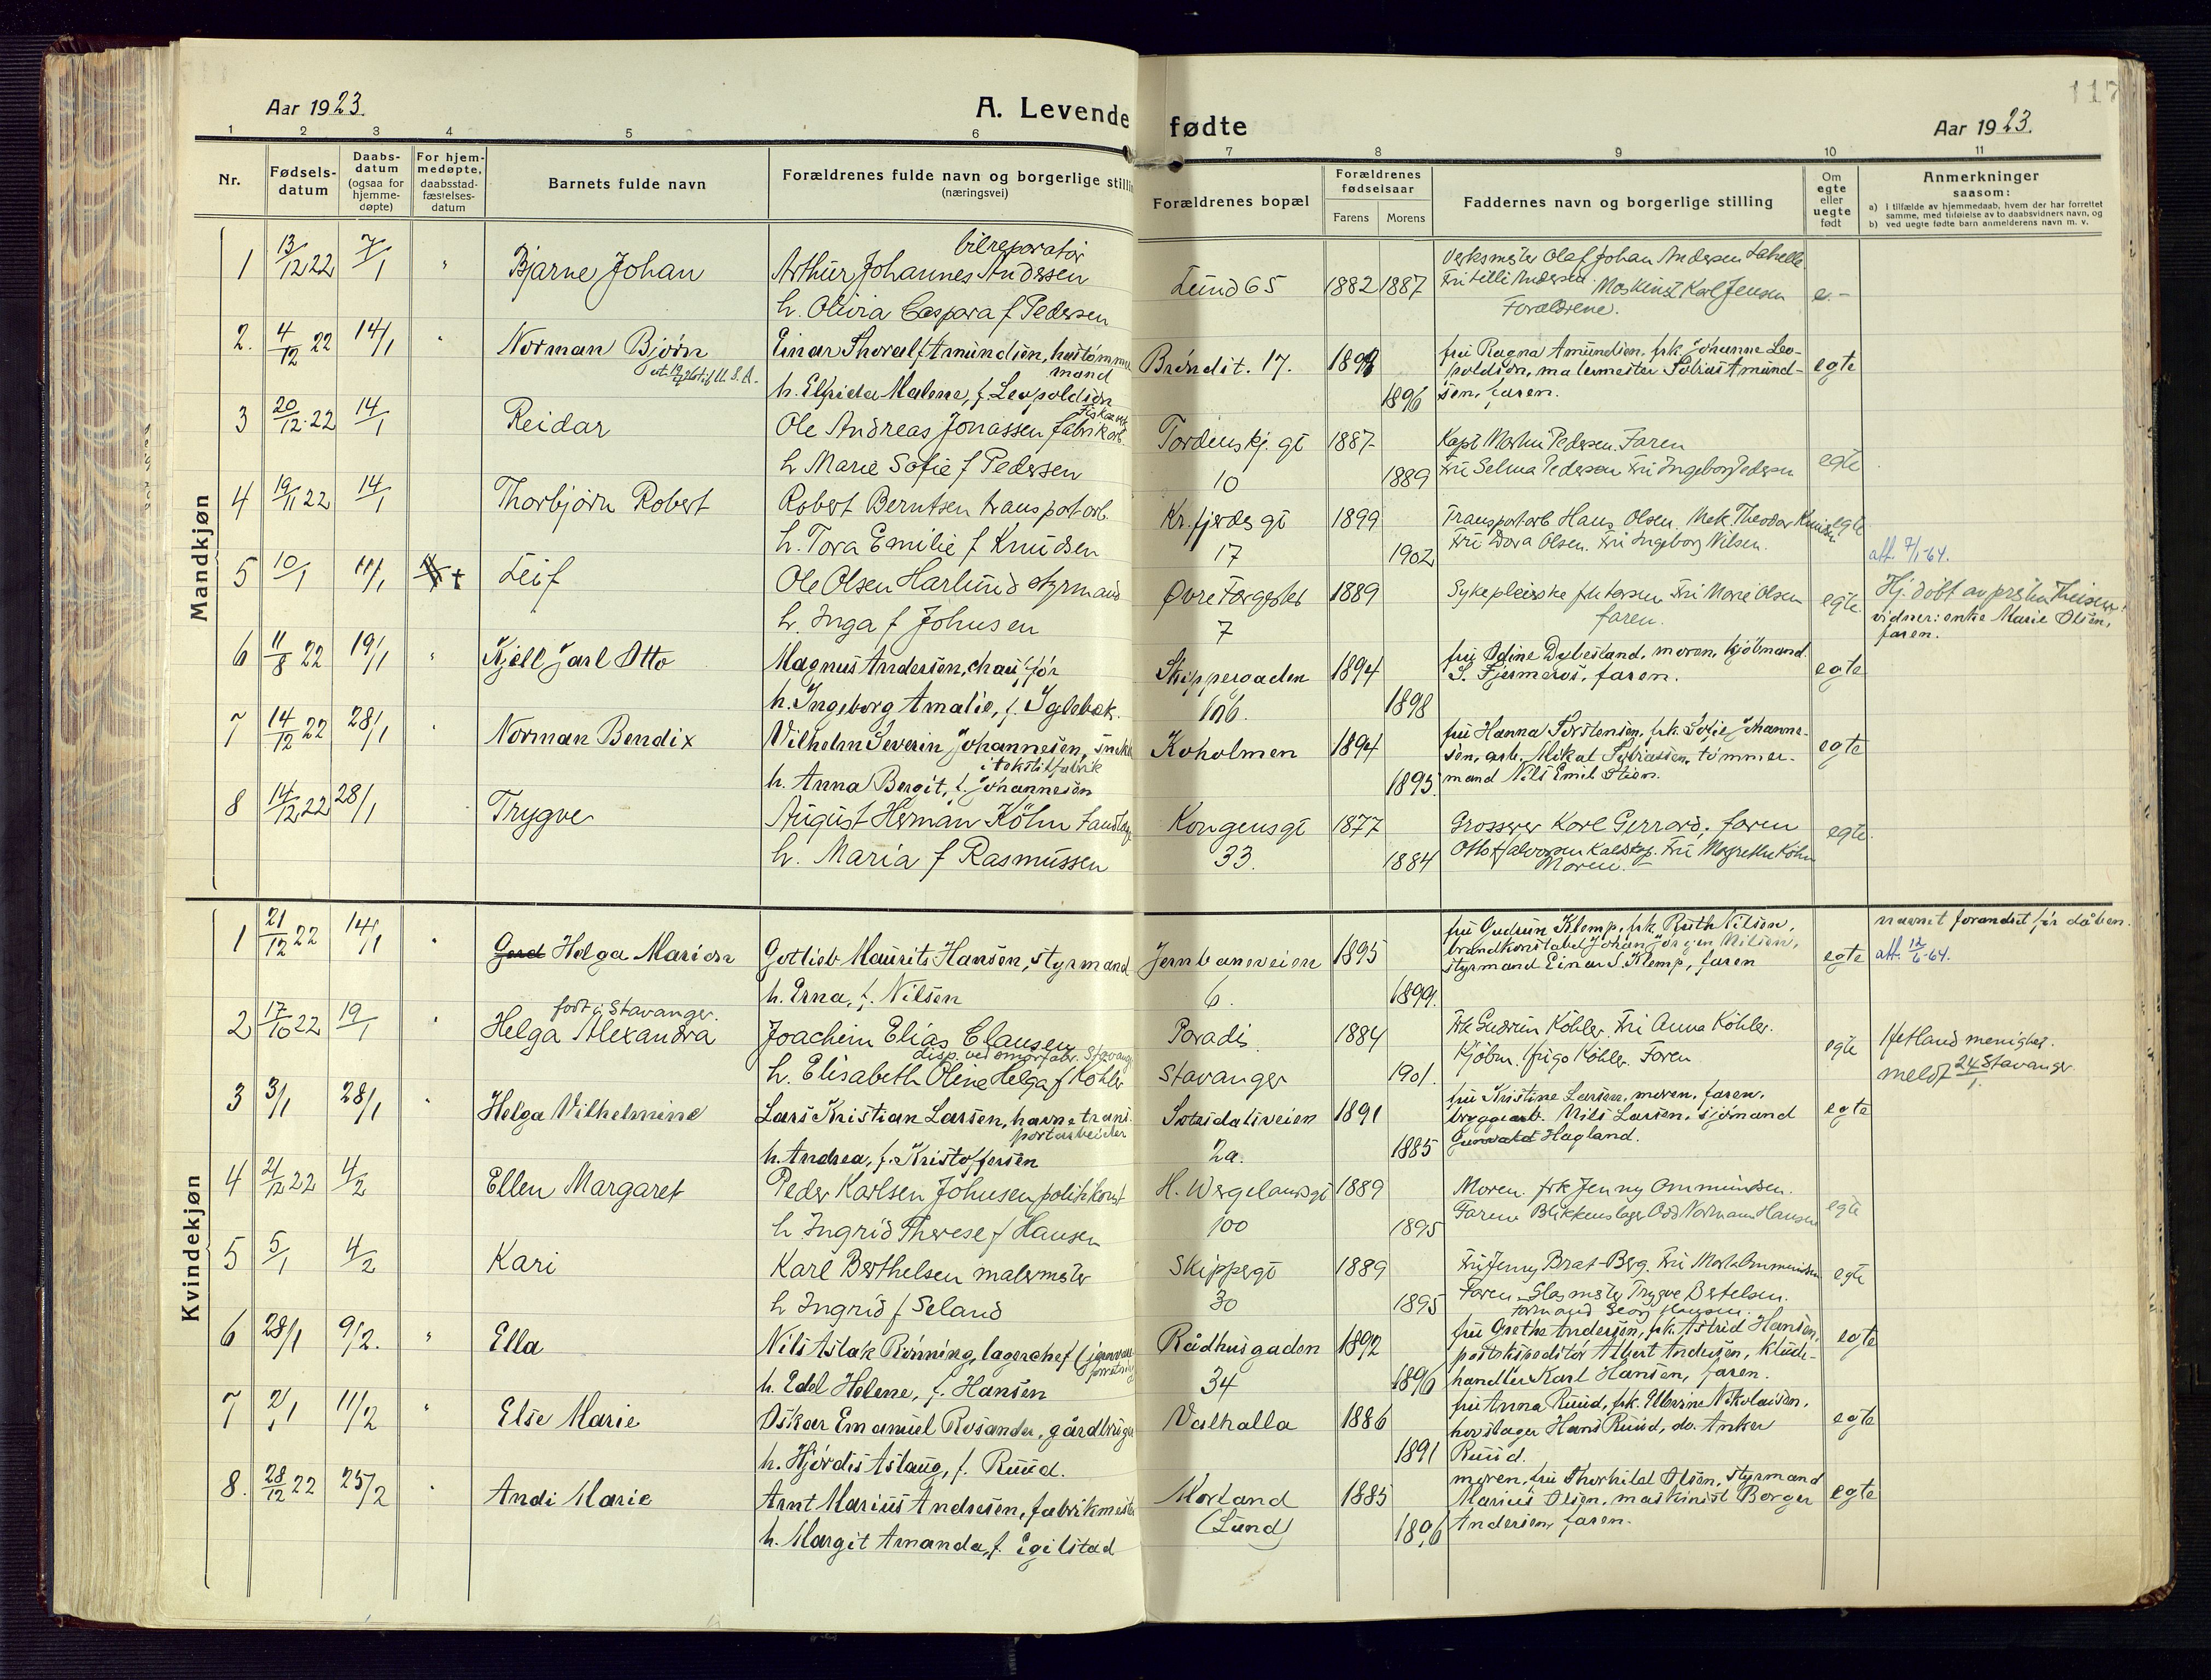 117
Aar 1923. A. Levende fødte Aar 1923.
1 2 3 4 5 6 7 8 9 10 11
Nr. Fødsels-datum Daabs-datum (ogsaa for hjemme-døpte) For hjem-medøpte, daabsstad-fæstelses-datum Barnets fulde navn Forældrenes fulde navn og borgerlige stilling (næringsvei) Forældrenes bopæl Forældrenes fødselsaar Farens Morens Faddernes navn og borgerlige stilling Om egte eller uegte født Anmerkninger saasom:
a) i tilfælde av hjemmedaab, hvem der har forrettet samme, med tilføielse av to daabsvidners navn, og
b) ved uegte fødte barn anmelderens navn m. v.
Mandkjøn
bilreparatør
1 13/12 22 7/1 " Bjarne Johan Arthur Johannes Andersen Lund 65 1882 1887 Verksmester Olaf Johan Andersen
Fru Lilli Andersen. Maskinist Karl Jensen e.-
h. Olivia Caspara f Pedersen Forældrene.
2. 4/12 22 14/1 " Norman Bjørn Einar Thoralf Amundsen, hustømmer- Brøndst. 17. fru Ragna Amundsen, frk. Johanne Leo-
mand poldson, malermester Tobias Amund- egte
h. Elfrida Malene, f. Leopoldson 1896 sen, faren.
3 20/12 22 14/1 Reidar Ole Andreas Jonassen fabrikarb. Tordenskj. gt 1887 Kapt Martin Pedersen. Faren
h Marie Sofie f Pedersen 10 1889 Fru Selma Pedersen Fru Ingeborg Pedersen egte
4 19/11 22 14/1 Thorbjørn Robert Robert Berntsen transportarb. Kr. fjerdes gt 1899 Transportarb Hans Olsen. Mek. Theodor Knudsen egte
h. Tora Emilie f Knudsen 17 1902 Fru Dora Olsen. Fru Ingeborg Nilsen.
att. 7/1-64.
5 10/1 11/1 + Leif Ole Olsen Harlund styrmand Øvre Torgegt 1889 Sykepleierske Fru Marie Olsen egte Hj. døbt av presten
h. Inga f Johnsen 7 faren. vidner: enke Marie Olsen,
faren.
6 11/8 22 19/1 " Kjell Jarl Otto Magnus Andersen, chauffør Skippergaden 1894 fru Odine Dybesland, moren, kjøbmand
S. Fjermeros, faren. egte
h. Ingeborg Amalie, f. Iglebæk. 106. 1898
7 14/12 22 28/1 " Norman Bendix Vilhelm Severin Johannesen, snekker Koholmen 1894 fru Hanna Torstensen, frk. Sofie Johanne-
i tekstilfabrik sen, arb. Mikal Tobiassen, tømmer- egte
h. Anna Bergit, f. Johannesen 1895. mand Nils Emil Stien.
8 14/12 22 28/1 Trygve August Herman Köhn Kongensgt 1877 Grosserer Karl Gerrard. faren
h. Maria f Rasmussen 33. 1884 Otto Halvorsen Fru Magrethe Köhn egte.
Moren.
Kvindekjøn
1 21/12 22 14/1 " Gerd Helga Marion Gotlieb Maurits Hansen, styrmand Jernbaneveien 1895 fru Gudrun Klemp, frk. Ruth Nilsen, navnet forandret før dåben.
brandkonstabel Johan Jørgen Nilsen,
styrmand Einar S. Klemp, faren egte att. 12/6-64.
h. Erna, f. Nilsen 6. 1899.
født i Stavanger.
2 17/10 22 19/1 Helga Alexandra Joachim Elias Clausen Paradis 1884 Frk Gudrun Köhler, Fru Anna Köhler.
disp. ved smørfabr. Stavanger Kjøbm. Köhler. Faren egte Hetland menighet.
h. Elisabeth Oline Helga f Köhler Stavanger 1901. meldt 24/1 Stavanger
3 3/1 28/1 " Helga Vilhelmine Lars Kristian Larsen, havnetrans- Solsidaliveien 1891 fru Kristine Larsen, moren, faren,
portarbeider bryggearb. Nils Larsen, sjømand egte
h. Andrea, f. Kristoffersen 2a. 1885 Gunvald Hagland.
4 2/12 22 4/2 Ellen Margaret Peder Karlsen Johnsen politikonst H. Wergelandsgt 1889 Moren. frk Jenny Ommundsen.
h Ingrid Therese f Hansen 100 1895 Faren Blikkenslager Odd Normann Hansen egte
5 5/1 4/2 Kari Karl Berthelsen malermester Skippergt 1889 Fru Jenny Brat-Berg. Fru egte
h Ingrid f Seland 30 1895 Faren Glasmester Trygve Bertelsen.
Formand Georg Hansen.
6 28/1 9/2. " Ella Nils Aslak Rønning, lagerchef (jernvare- Rådhusgaden 1892 fru Grethe Andersen, frk. Astrid Hansen,
forretning postekspeditør Albert Andersen, klude- egte
h. Edel Helene, f. Hansen 34 1896 handler Karl Hansen, faren.
7 2/1 11/2 " Else Marie Oskar Emanuel Rosander, gårdbruger Valhalla 1886 fru Anna Ruud, frk. Ellevine Nikolaisen,
hovslager Hans Ruud, do. Anker egte
h. Hjørdis Aslaug, f. Ruud. 1891 Ruud.
8. 28/12 22 25/2 " Andi Marie Arnt Marius Andresen, fabrikmester Morland 1885 moren, fru Thorhild Olsen, styrmand
Marius Olsen, maskinist Borger egte
h. Margit Amanda, f. Egilstad (Lund) 1896 Andersen, faren.